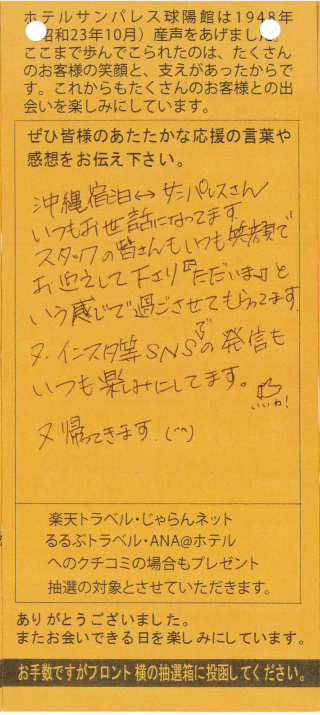 ホテルサンパレス球陽館は1948年
昭和23年10月）産声をあげました。
ここまで歩んでこられたのは、たくさん
のお客様の笑顔と、支えがあったからで
す。これからもたくさんのお客様との出
会いを楽しみにしています。
ぜひ皆様のあたたかな応援の言葉や
感想をお伝え下さい。
沖縄宿泊↔サンパレスさん
いつもお世話になってます
スタッフの皆さんもいつも笑顔で
お迎えして下さり『ただいま』と
いう感じで過ごさせてもらってます。
又、インスタ等SNSでの発信も
いつも楽しみにしてます。
いいね!
又帰ってきます。(^^)
楽天トラベル・じゃらんネット
るるぶトラベル・ANA@ホテル
へのクチコミの場合もプレゼント
抽選の対象とさせていただきます。
ありがとうございました。
またお会いできる日を楽しみにしています。
お手数ですがフロント横の抽選箱に投函してください。